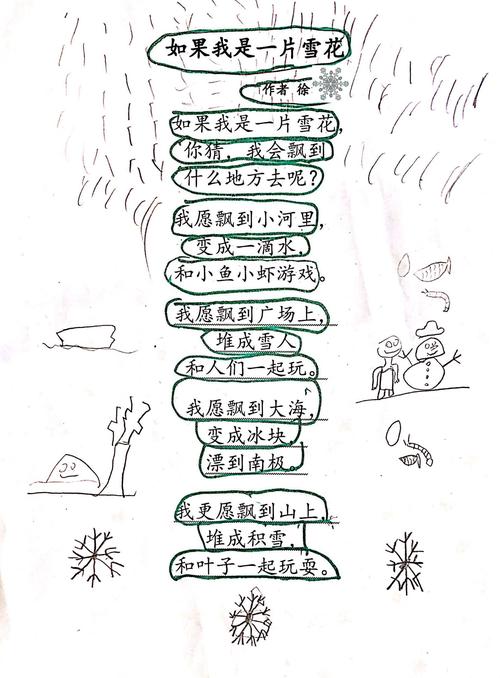 如果我是一片雪花
作者 徐
如果我是一片雪花,
你猜，我会飘到
什么地方去呢？
我愿飘到小河里,
变成一滴水,
和小鱼小虾游戏。
我愿飘到广场上,
堆成雪人
和人们一起玩。
我愿飘到大海,
变成冰块,
漂到南极。
我更愿飘到山上,
堆成积雪,
和叶子一起玩耍。